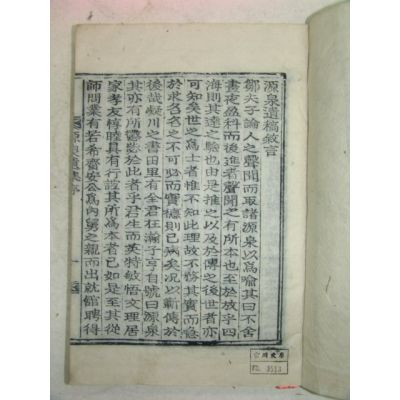 源泉遺稿敘言
鄒夫子論人之聲聞而取諸源泉以爲喩其曰不舍
晝夜盈科而後進者聲聞之有所本也至於放乎四
海則其達之驗也由是推之以及於傳之後世者亦
可知矣世之爲士者惟不知此理故不務其實而急
於求名名之不可必而實德則已病矣况以蘄傳於
後哉凝川之書田里有全君在瀚子亨自號曰源泉
其亦有所鬱於此者乎君生而英特敏悟文理居
家孝友惇睦具有行誼其所爲本者已如是至其從
師問業有若希齋安公爲內舅之親而出就館聘得
源泉遺集序
一